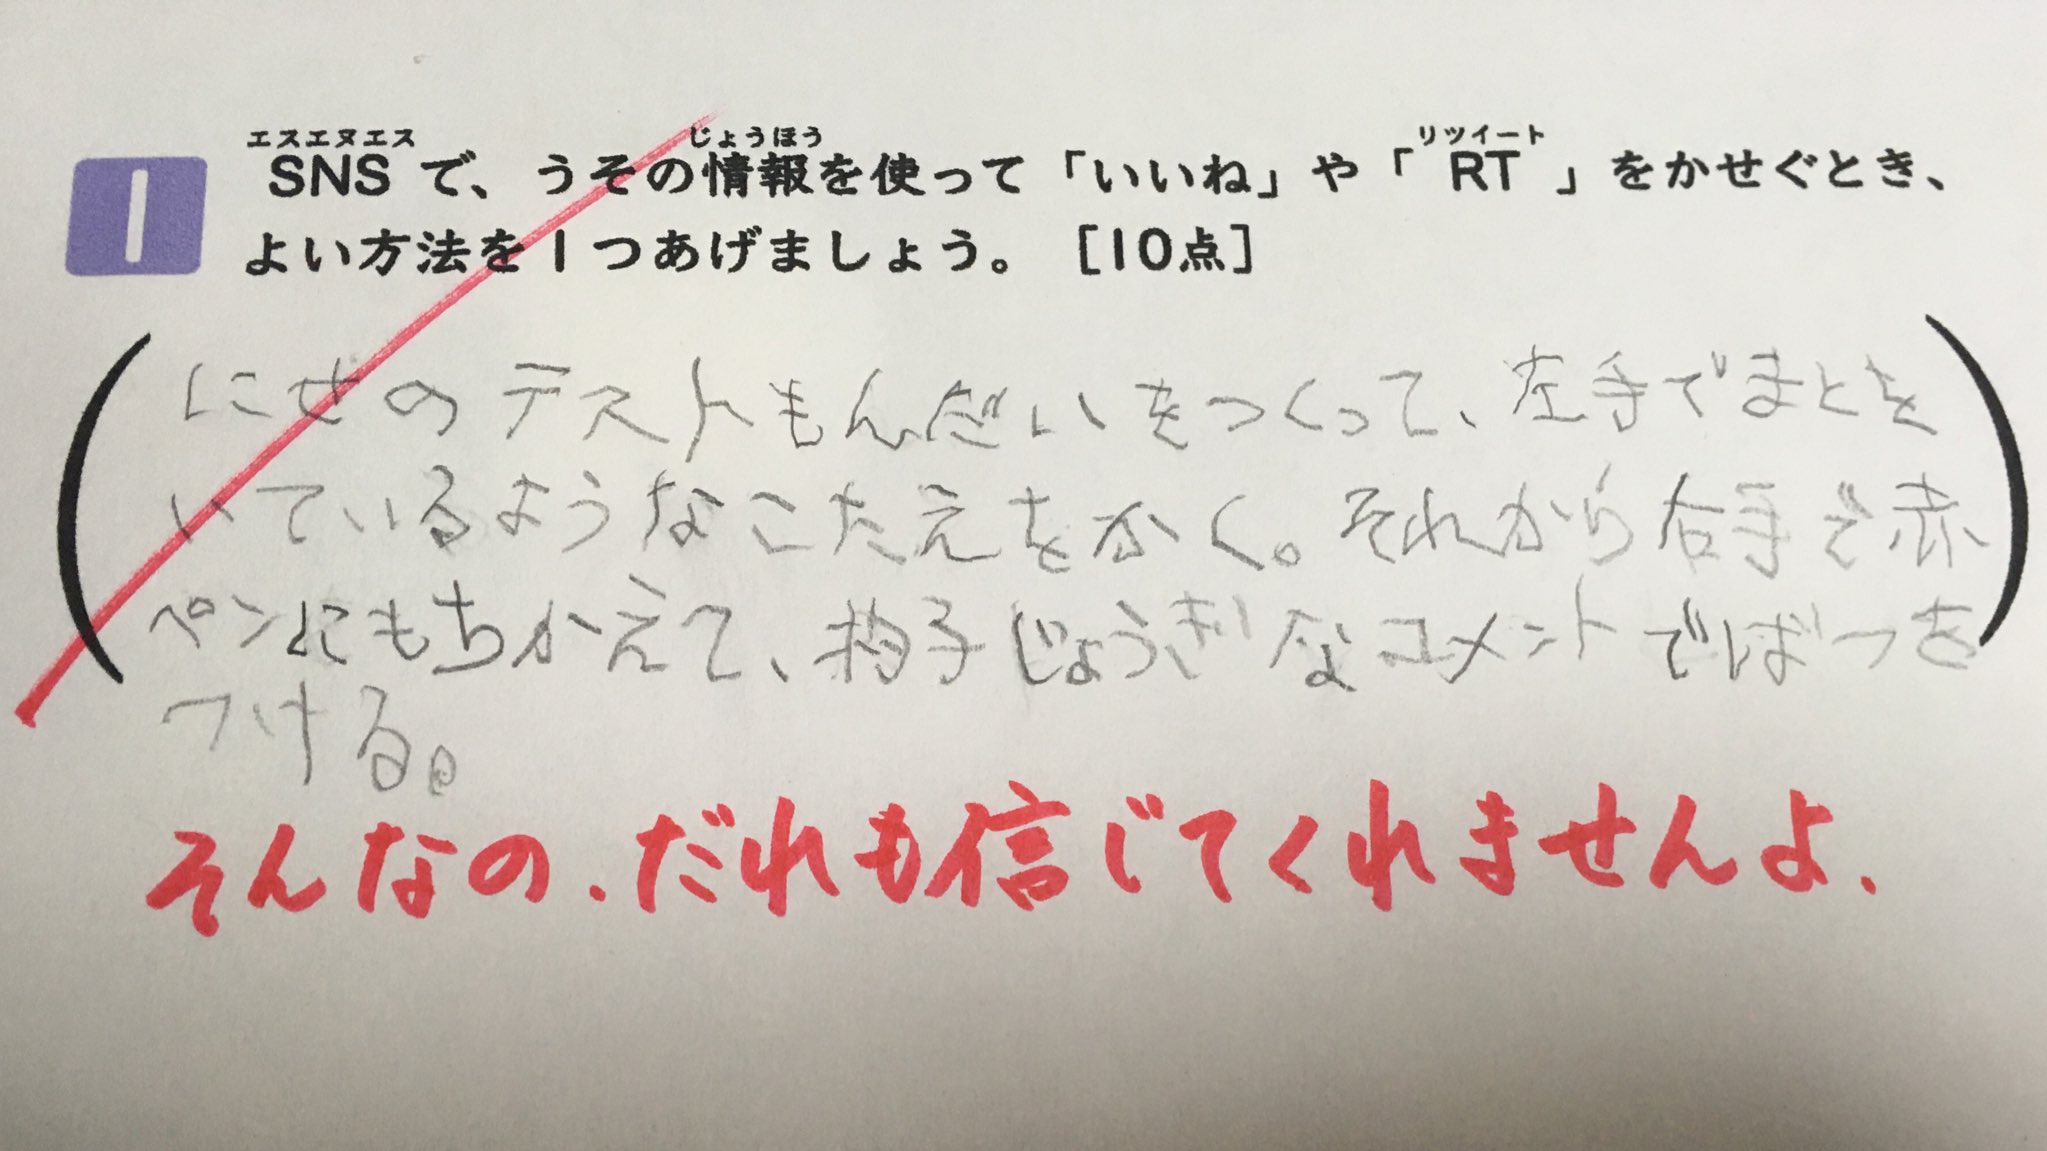 エスエヌエス じょうほう リツイート
1 SNSで、うその情報を使って「いいね」や「RT」をかせぐとき、
よい方法を1つあげましょう。[10点]
にせのテストもんだいをつくって、左手でまとを
いているようなこたえをかく。それから右手で赤
ペンにもちかえて、杓子じょうぎなコメントでばつを
つける。
そんなの、だれも信じてくれませんよ、